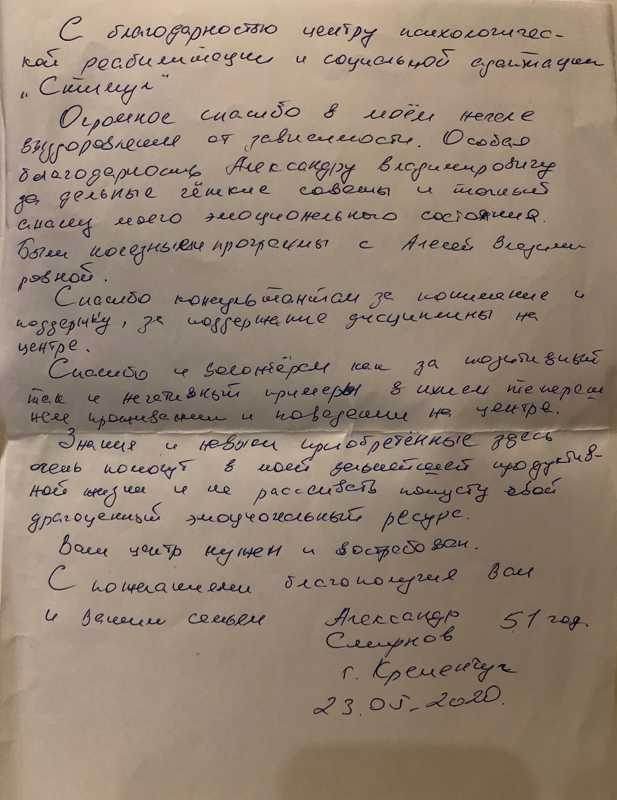 С благодарностью центру психологичес-
кой реабилитации и социальной адаптации
„Стимул“
Огромное спасибо в моём начале
выздоровления от зависимости. Особая
благодарность Александру Владимировичу
за дельные чёткие советы и точный
анализ моего эмоционального состояния.
Были полезными программы с Алесей Владими
ровной.
Спасибо консультантам за понимание и
поддержку, за поддержание дисциплины на
центре.
Спасибо и волонтёрам как за позитивный
так и негативный примеры в их
проживании и поведении на центре.
Знания и навыки приобретённые здесь
очень помогут в моей дальнейшей продуктив-
ной жизни и не рассеивать попусту свой
драгоценный эмоциональный ресурс.
Ваш центр нужен и востребован.
С пожеланиями благополучия Вам
и Вашим семьям Александр 51 год.
Смирнов
г. Кременчуг
23.05.2020.